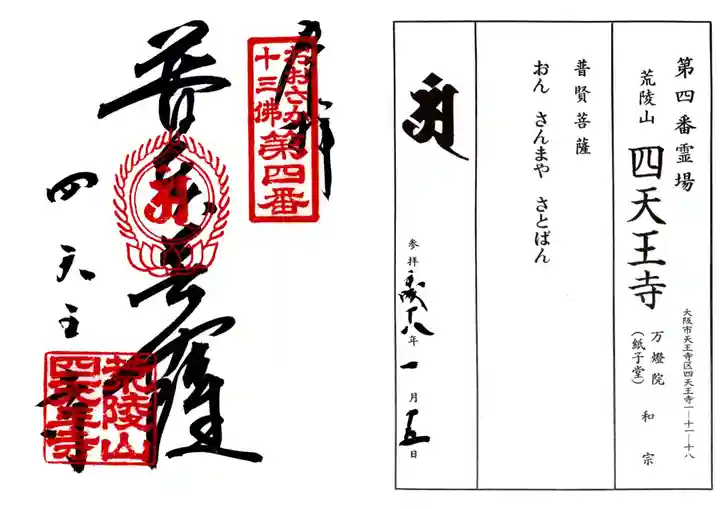 第四番霊場
荒陵山 四天王寺
万燈院(紙子堂) 和宗
大阪市天王寺区四天王寺一―十一―十八
普賢菩薩
おん さんまや さとばん
参拝平成十八年一月十五日
奉拝
おおさか十三佛
第四番
普賢菩薩
四天王寺
荒陵山
四天王寺